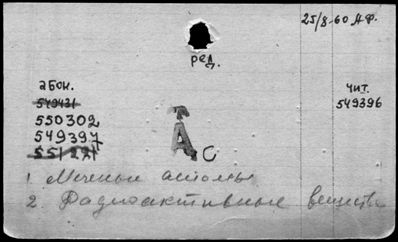 25/8-60 А.Ф.
ред.
абон.
549431
550302
549397
551271
чит.
549396
А с
1. Меченые атомы
2. Радиоактивные вещества